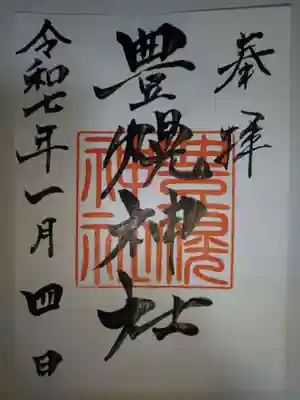 奉拝
豊幌神社
豊幌神社
令和七年一月四日